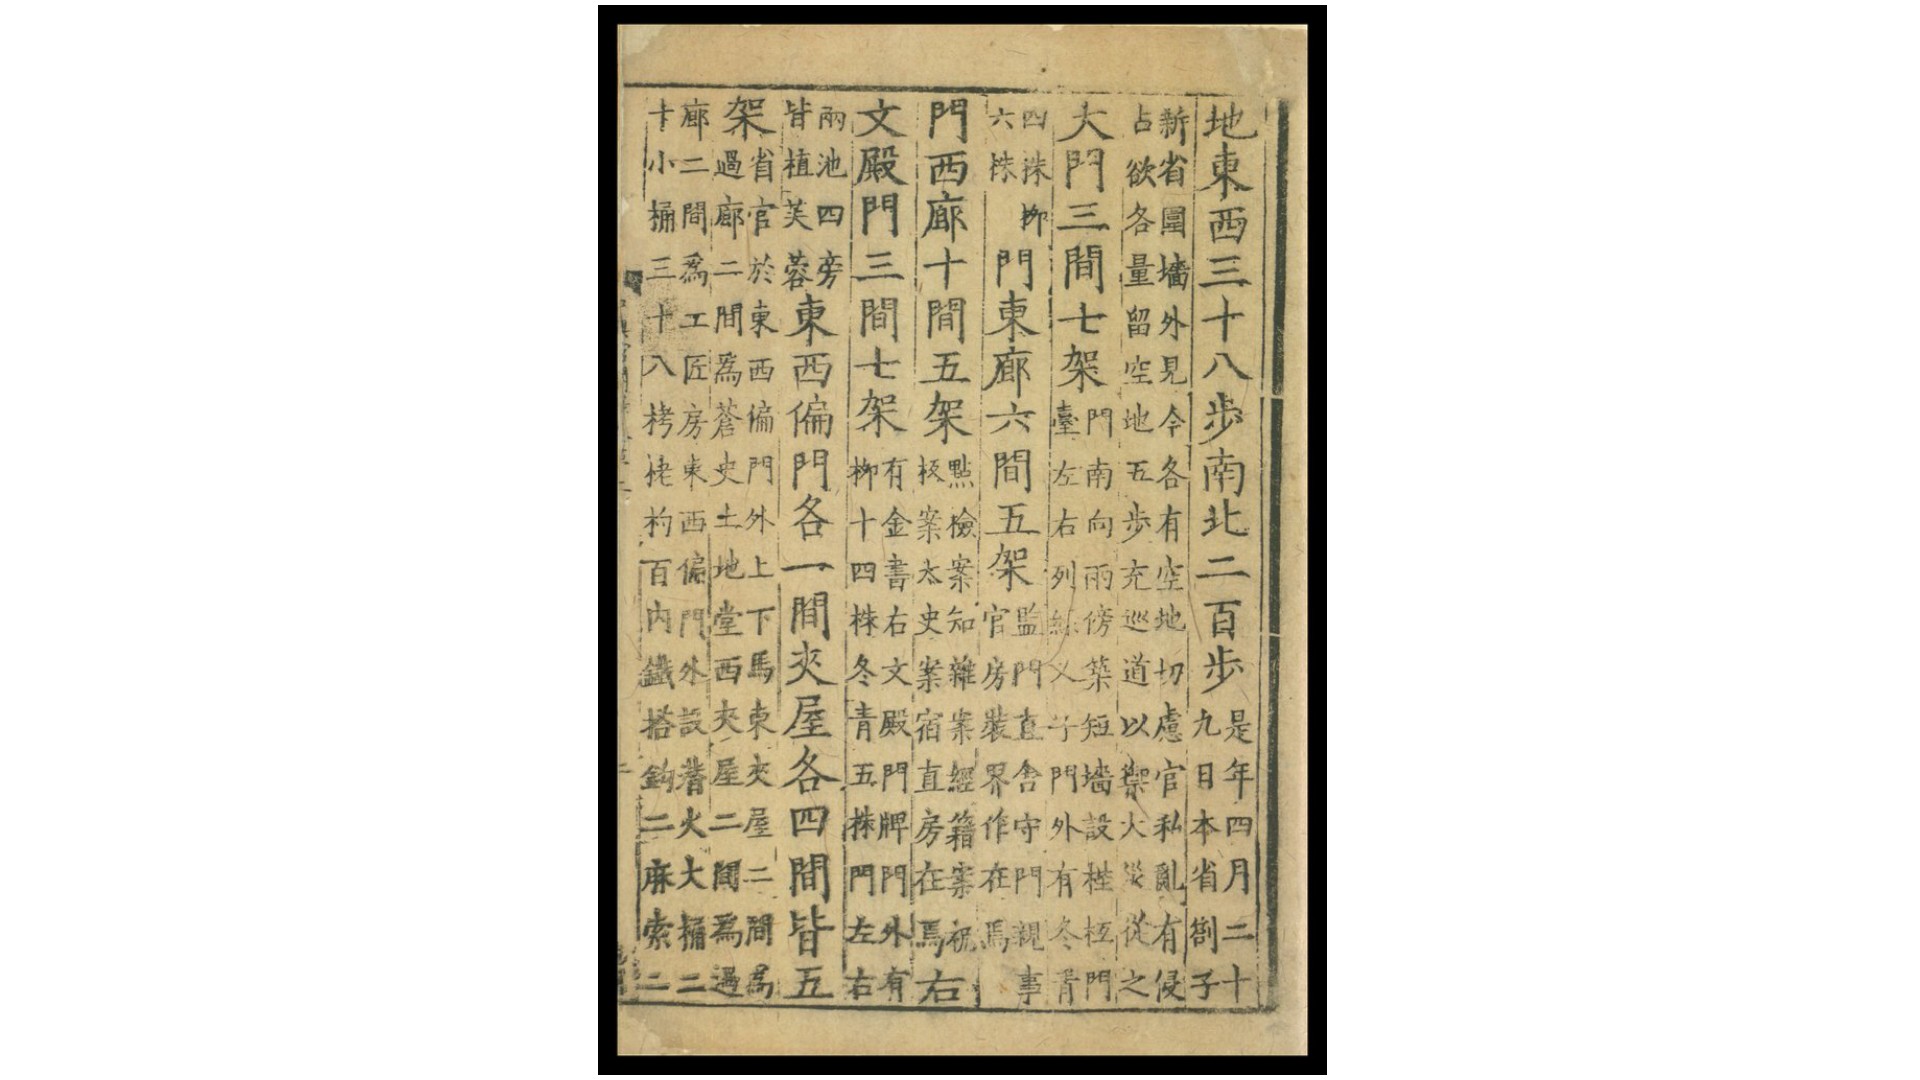 地東西三十八步南北二百步是年四月二十九日本省劄子
新省圍墻外見今各有空地切慮官私亂有侵占欲各量留空地五步充巡道以禦火災從之
大門三間七架門南向兩傍築短墻設梐枑門臺左右列义子門外有冬青
四株柳六株門東廊六間五架監門直舍守門親事官房裝界作在焉
門西廊十間五架點檢案知雜案經籍案祝板案太史案宿直房在焉右
文殿門三間七架有金書右文殿門牌門外有柳十四株冬青五株門左右
兩池四旁皆植芙蓉東西偏門各一間夾屋各四間皆五
架省官於東西偏門外上下馬東夾屋二間爲過廊二間爲蒼史土地堂西夾屋二間爲過
廊二間爲工匠房東西偏門外設潛火大桶二十小桶三十八栲栳杓百內鐵搭鈎二麻索二